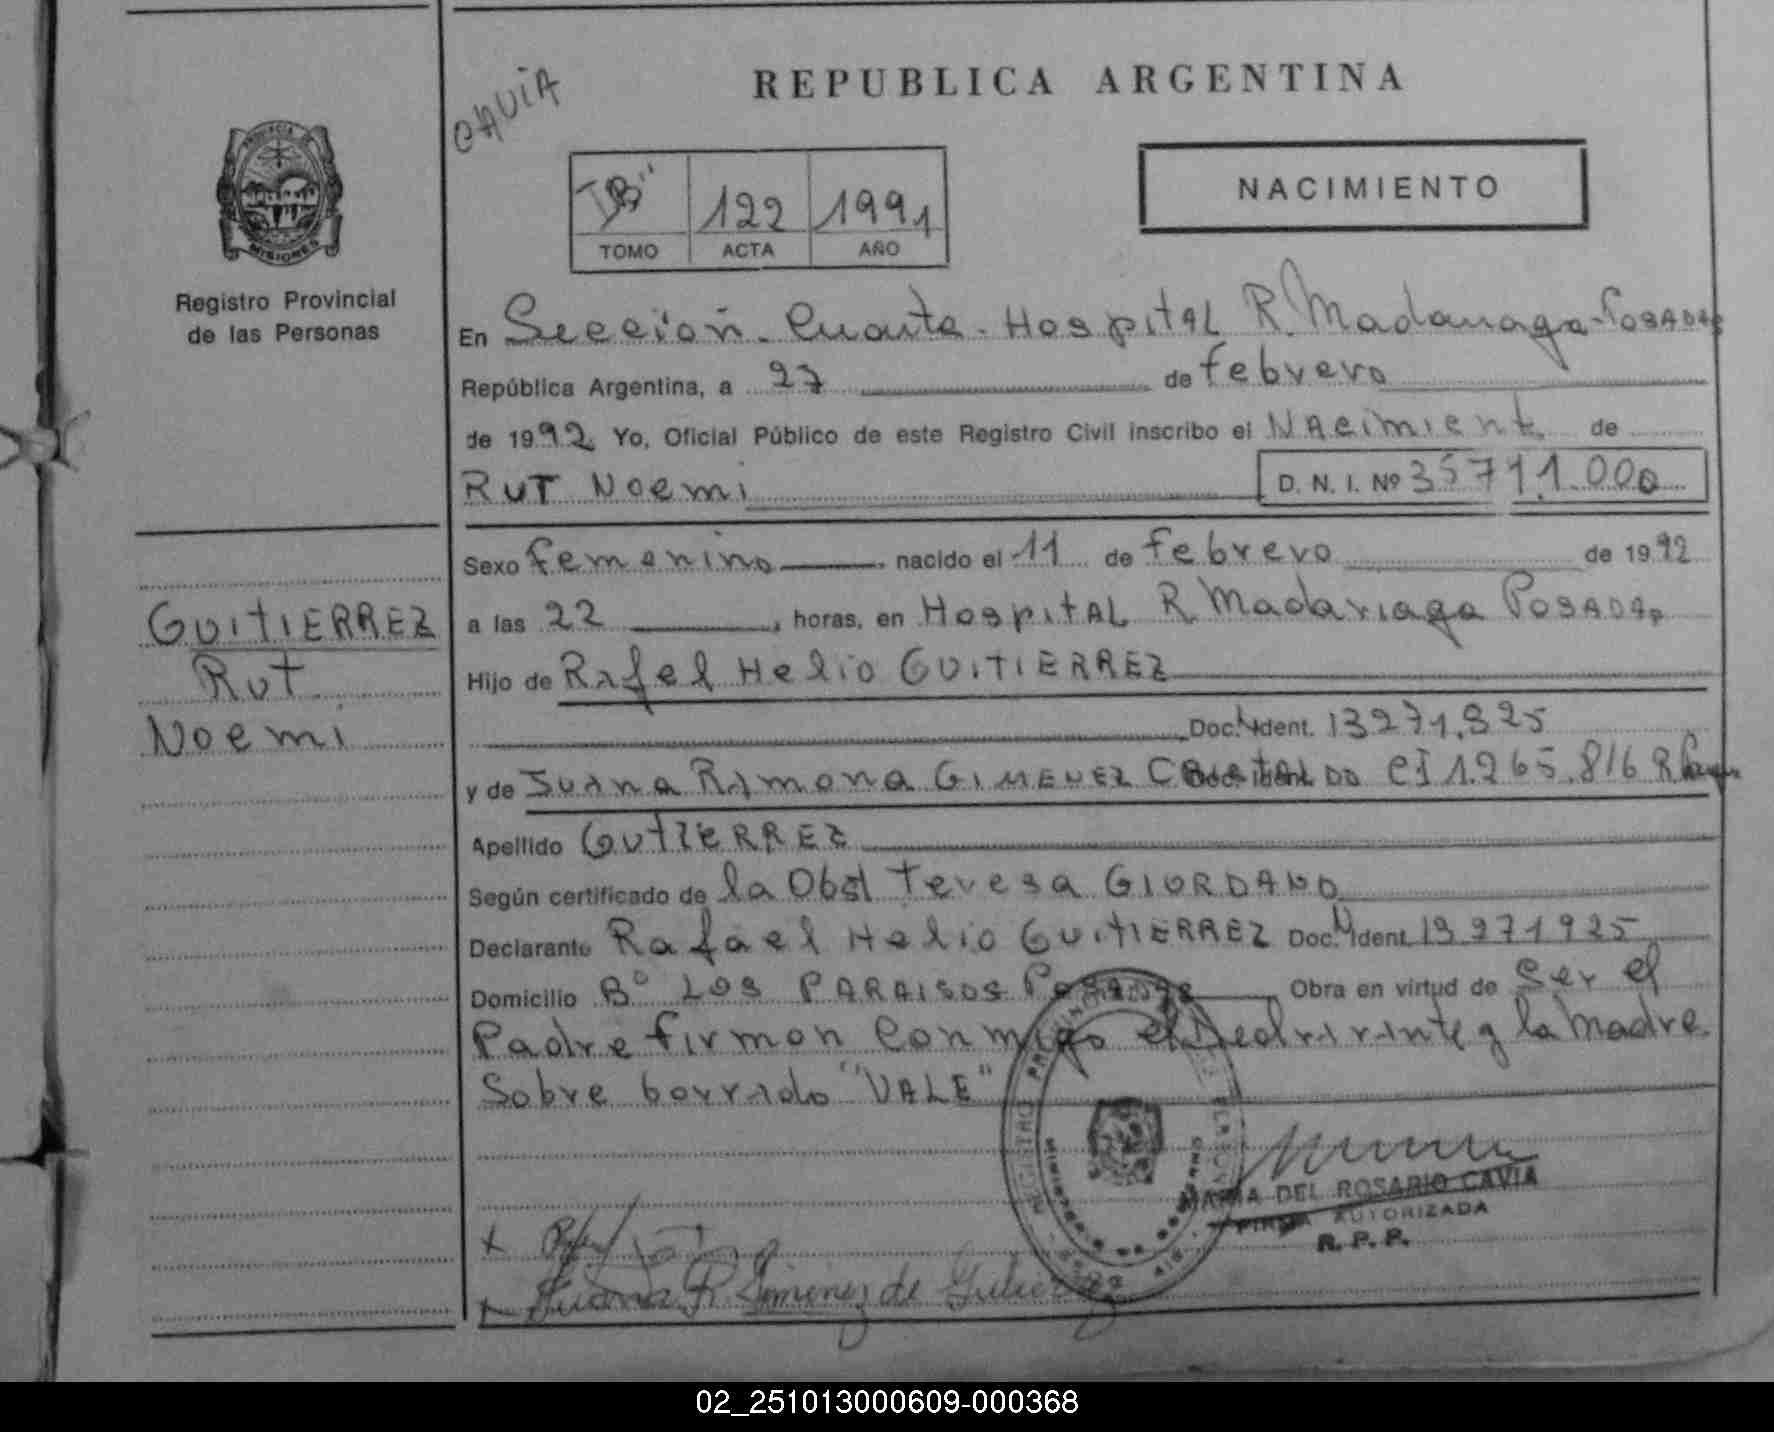 CAVIA
REPUBLICA ARGENTINA
"B" 122 1991
TOMO ACTA AÑO
NACIMIENTO
PROVINCIA
MISIONES
Registro Provincial
de las Personas
En Sección Cuarta - Hospital R. Madariaga - Posadas
República Argentina, a 27 de febrero
de 1992 Yo, Oficial Público de este Registro Civil inscribo el Nacimient de
RUT Noemi D. N. I. Nº 35711.000
Sexo femenino nacido el 11 de febrero de 1992
a las 22 , horas, en Hospital R Madariaga Posadas
Hijo de Rafel Helio GUITIERREZ
Doc. Ident. 13271.925
y de Juana Ramona GIMENEZ CI 1.265.816 R
Apellido GUTIERREZ
Según certificado de la Obst Teresa GIORDANO
Declarante Rafael Helio GUITIERREZ Doc. Ident. 13271925
Domicilio Bº LOS PARAISOS Posadas Obra en virtud de Ser el
Padre firman conmigo el y la Madre
Sobre borrado "VALE"
GUITIERREZ
Rut
Noemi
MARIA DEL ROSARIO CAVIA
FIRMA AUTORIZADA
R. P. P.
Juana R. Gimenez de Gutierrez
02_251013000609-000368